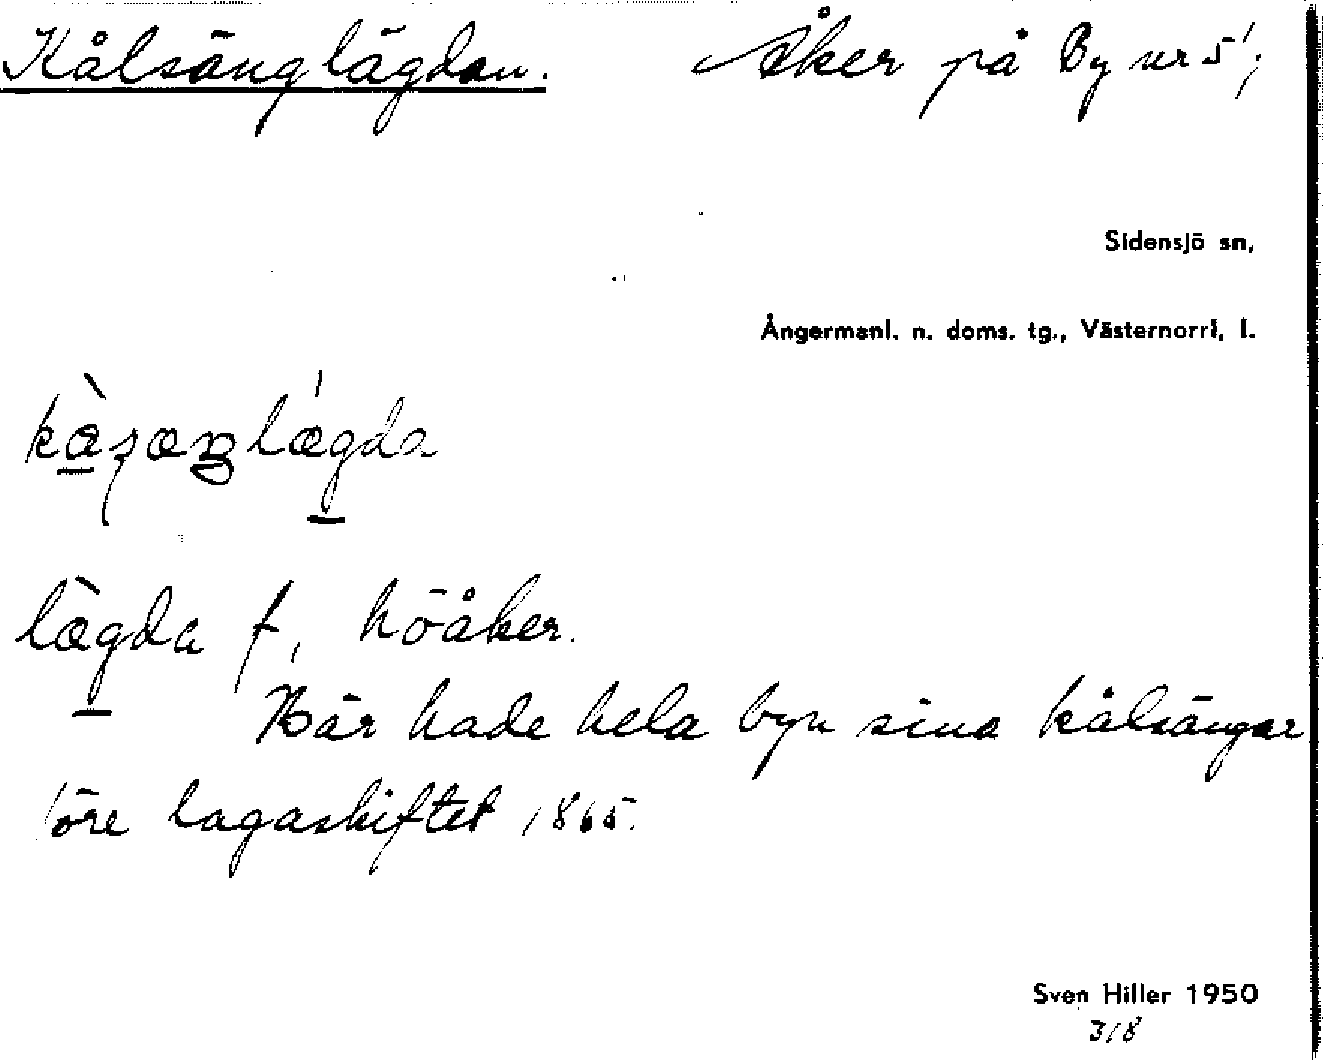 Kålsänglägdan. Åker på By nr 5;
Sidensjö sn,
Ångermanl. n. doms. tg., Västernorrl. l.
lægda f, höåker.
Här hade hela byn sina kålsängar
före lagaskiftet 1865.
Sven Hiller 1950
318